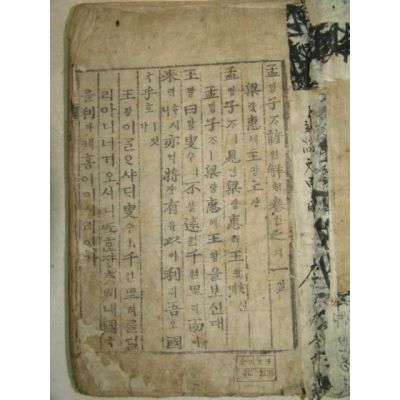 孟ᄆᆡᆼ子ᄌᆞ諺언解ᄒᆡ卷권之지一일
梁량惠혜王왕上샹
孟ᄆᆡᆼ子ᄌᆞㅣ見견梁량惠혜王왕ᄒᆞ신대
孟ᄆᆡᆼ子ᄌᆞㅣ梁량惠혜王왕을보신대
王왕曰왈叟수ㅣ不블遠원千쳔里리而이
來ᄅᆡᄒᆞ시니亦역將쟝有유以이利리吾오國
국乎호잇가
王왕이ᄀᆞᆯᄋᆞ샤ᄃᆡ叟수ㅣ千쳔里리를멀
리아니너겨오시니ᄯᅩᄒᆞᆫ쟝ᄎᆞᆺᄡᅥ내國국
을利리케홈이이시리잇가